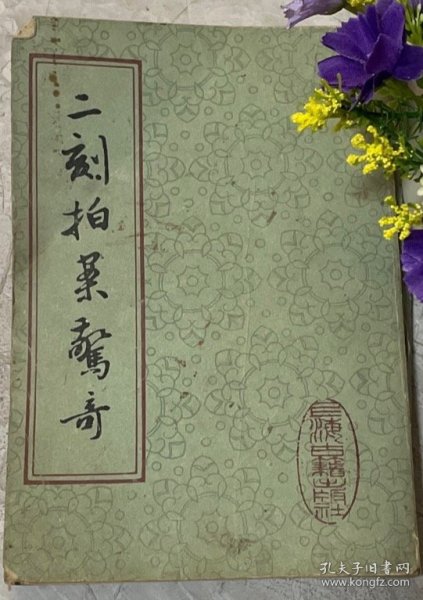 二刻拍案驚奇
上海古籍出版社
孔夫子旧书网
www.kongfz.com